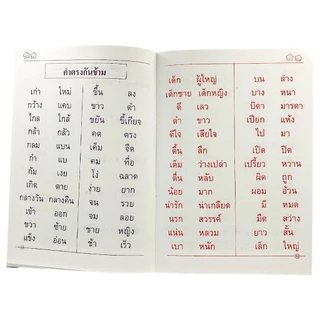 คำตรงกันข้าม
เก่า ใหม่ ขึ้น ลง
กว้าง แคบ ขาว ดำ
ใกล้ ไกล ขยัน ขี้เกียจ
กล้า กลัว คด ตรง
กลม แบน เค็ม จืด
กำ แบ คม ทื่อ
ก้ม เงย โง่ ฉลาด
เกิด ตาย ง่าย ยาก
กลางวัน กลางคืน จน รวย
เข้า ออก จม ลอย
ขวา ซ้าย ชาย หญิง
แข็ง อ่อน ช้า เร็ว
เด็ก ผู้ใหญ่ บน ล่าง
เด็กชาย เด็กหญิง บาง หนา
ดี เลว บิดา มารดา
ดำ ขาว เปียก แห้ง
ดีใจ เสียใจ ไป มา
ตื้น ลึก เปิด ปิด
เต็ม ว่างเปล่า เปรี้ยว หวาน
ตื่น หลับ ผิด ถูก
น้อย มาก ผอม อ้วน
น่ารัก น่าเกลียด มี หมด
นรก สวรรค์ มืด สว่าง
แน่น หลวม ยาว สั้น
เบา หนัก เล็ก ใหญ่